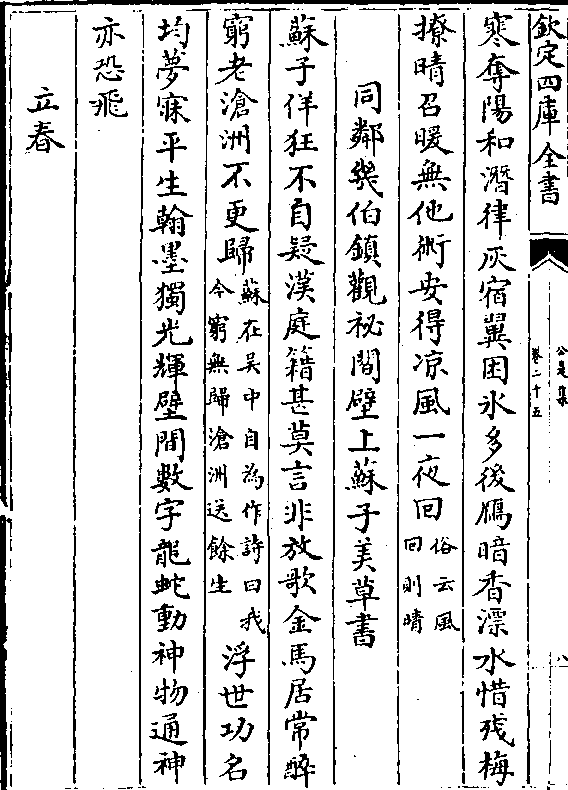 欽定四庫全書
公是集
卷二十五
八
寒奪陽和潛律灰宿翼困氷多後鴈暗香漂水惜殘梅
撩晴召暖無他術安得凉風一夜回俗云風
回則晴
同鄰幾伯鎮觀祕閣壁上蘇子美草書
蘇子佯狂不自疑漢庭籍甚莫言非放歌金馬居常醉
窮老滄洲不更歸蘇在吳中自為作詩曰我
今窮無歸滄洲送餘生浮世功名
均夢寐平生翰墨獨光輝壁間數字龍蛇動神物通神
亦恐飛
立春